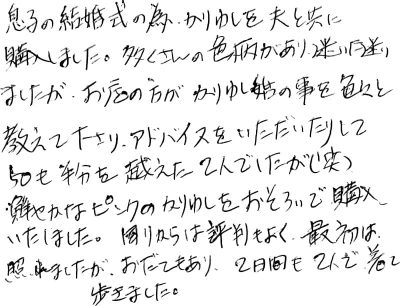 息子の結婚式の為、かりゆしを夫と共に
購入しました。多くさんの色柄があり、迷いに迷い
ましたが、お店の方がかりゆし婚の事を色々と
教えて下さり、アドバイスをいただいたりして
50も半分を越えた2人でしたが(笑)
鮮やかなピンクのかりゆしをおそろいで購入
いたしました。周りからは評判もよく、最初は
照れましたが、おだてもあり、2日間も2人で着て
歩きました。